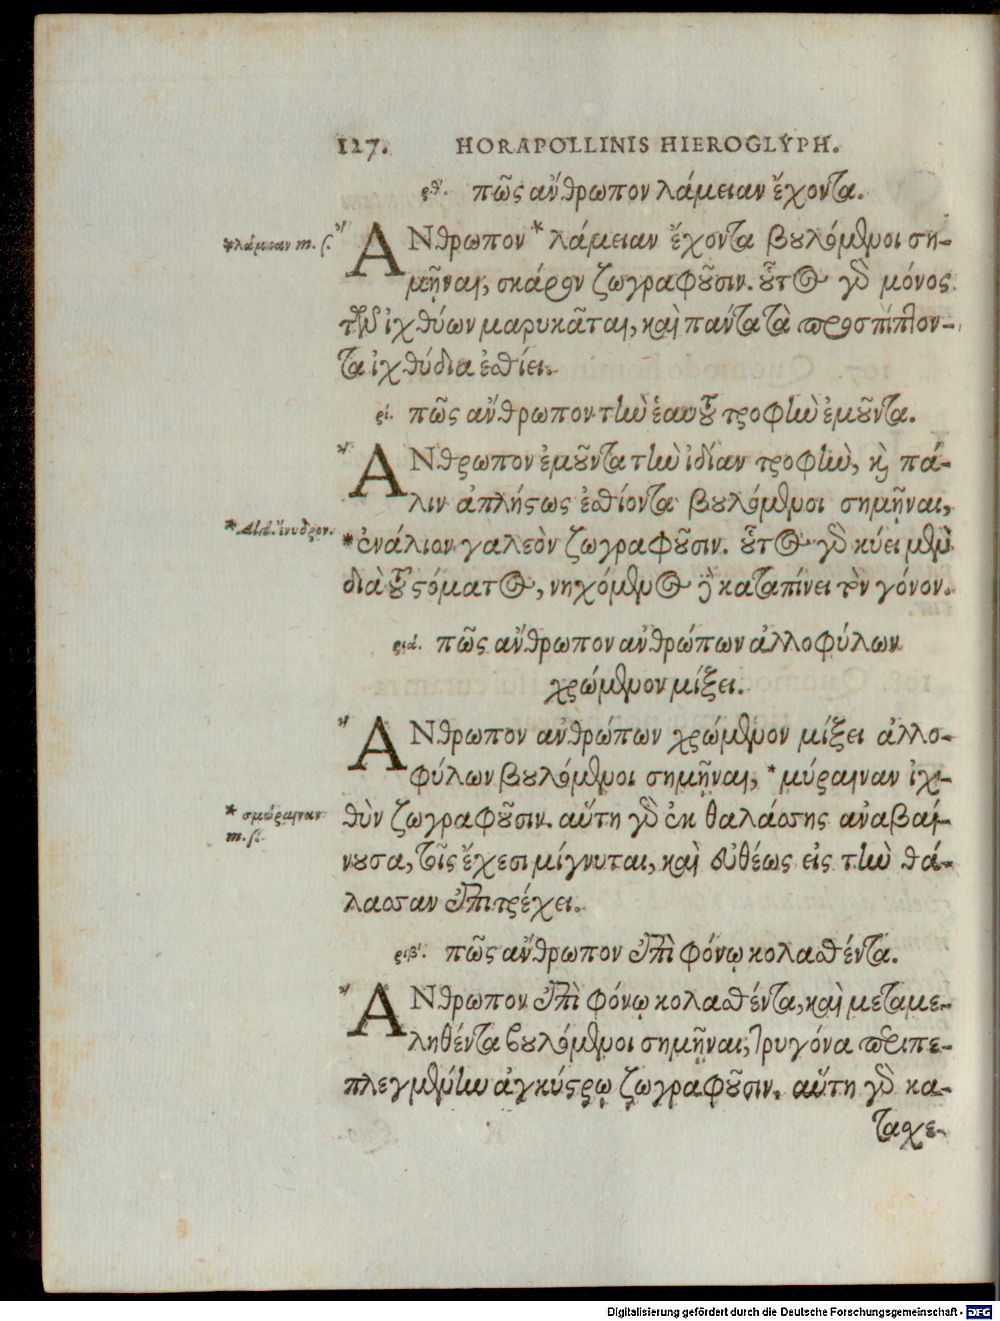 127. HORAPOLLINIS HIEROGLYPH.
ρθ'. πῶς ἄνθρωπον λάμειαν ἔχοντα.
*λάμναν m. ſ.
ΑΝθρωπον * λάμειαν ἔχοντα βουλόμενοι ση-
μῆναι, σκάρον ζωγραφοῦσιν. οὗτος γὰρ μόνος
τῶν ἰχθύων μαρυκᾶται, καὶ πάντα τὰ προσπίπτον-
τα ἰχθύδια ἐσθίει.
ρί. πῶς ἄνθρωπον τὴν ἑαυτοῦ τροφὴν ἐμοῦντα.
ΑΝθρωπον ἐμοῦντα τὴν ἰδίαν τροφὴν, καὶ πά-
λιν ἀπλήστως ἐσθίοντα βουλόμενοι σημῆναι,
* Ald. ἔνυδρον.
*ἐνάλιον γαλεὸν ζωγραφοῦσιν. οὗτος γὰρ κύει μὲν
διὰ τοῦ στόματος, νηχόμενος δὲ καταπίνει τὸν γόνον.
ριά. πῶς ἄνθρωπον ἀνθρώπων ἀλλοφύλων
χρώμενον μίξει.
ΑΝθρωπον ἀνθρώπων χρώμενον μίξει ἀλλο-
φύλων βουλόμενοι σημῆναι, * μύραιναν ἰχ-
* σμύραιναν
m. ſ.
θὺν ζωγραφοῦσιν. αὕτη γὰρ ἐκ θαλάσσης ἀναβαί-
νουσα, τοῖς ἔχεσι μίγνυται, καὶ εὐθέως εἰς τὴν θά-
λασσαν ἐπιτρέχει.
ριβ'. πῶς ἄνθρωπον ἐπὶ φόνῳ κολασθέντα.
ΑΝθρωπον ἐπὶ φόνῳ κολασθέντα, καὶ μεταμε-
ληθέντα βουλόμενοι σημῆναι, τρυγόνα περιπε-
πλεγμένην ἀγκίστρῳ ζωγραφοῦσιν. αὕτη γὰρ κα-
ταχε-
Digitalisierung gefördert durch die Deutsche Forschungsgemeinschaft - DFG